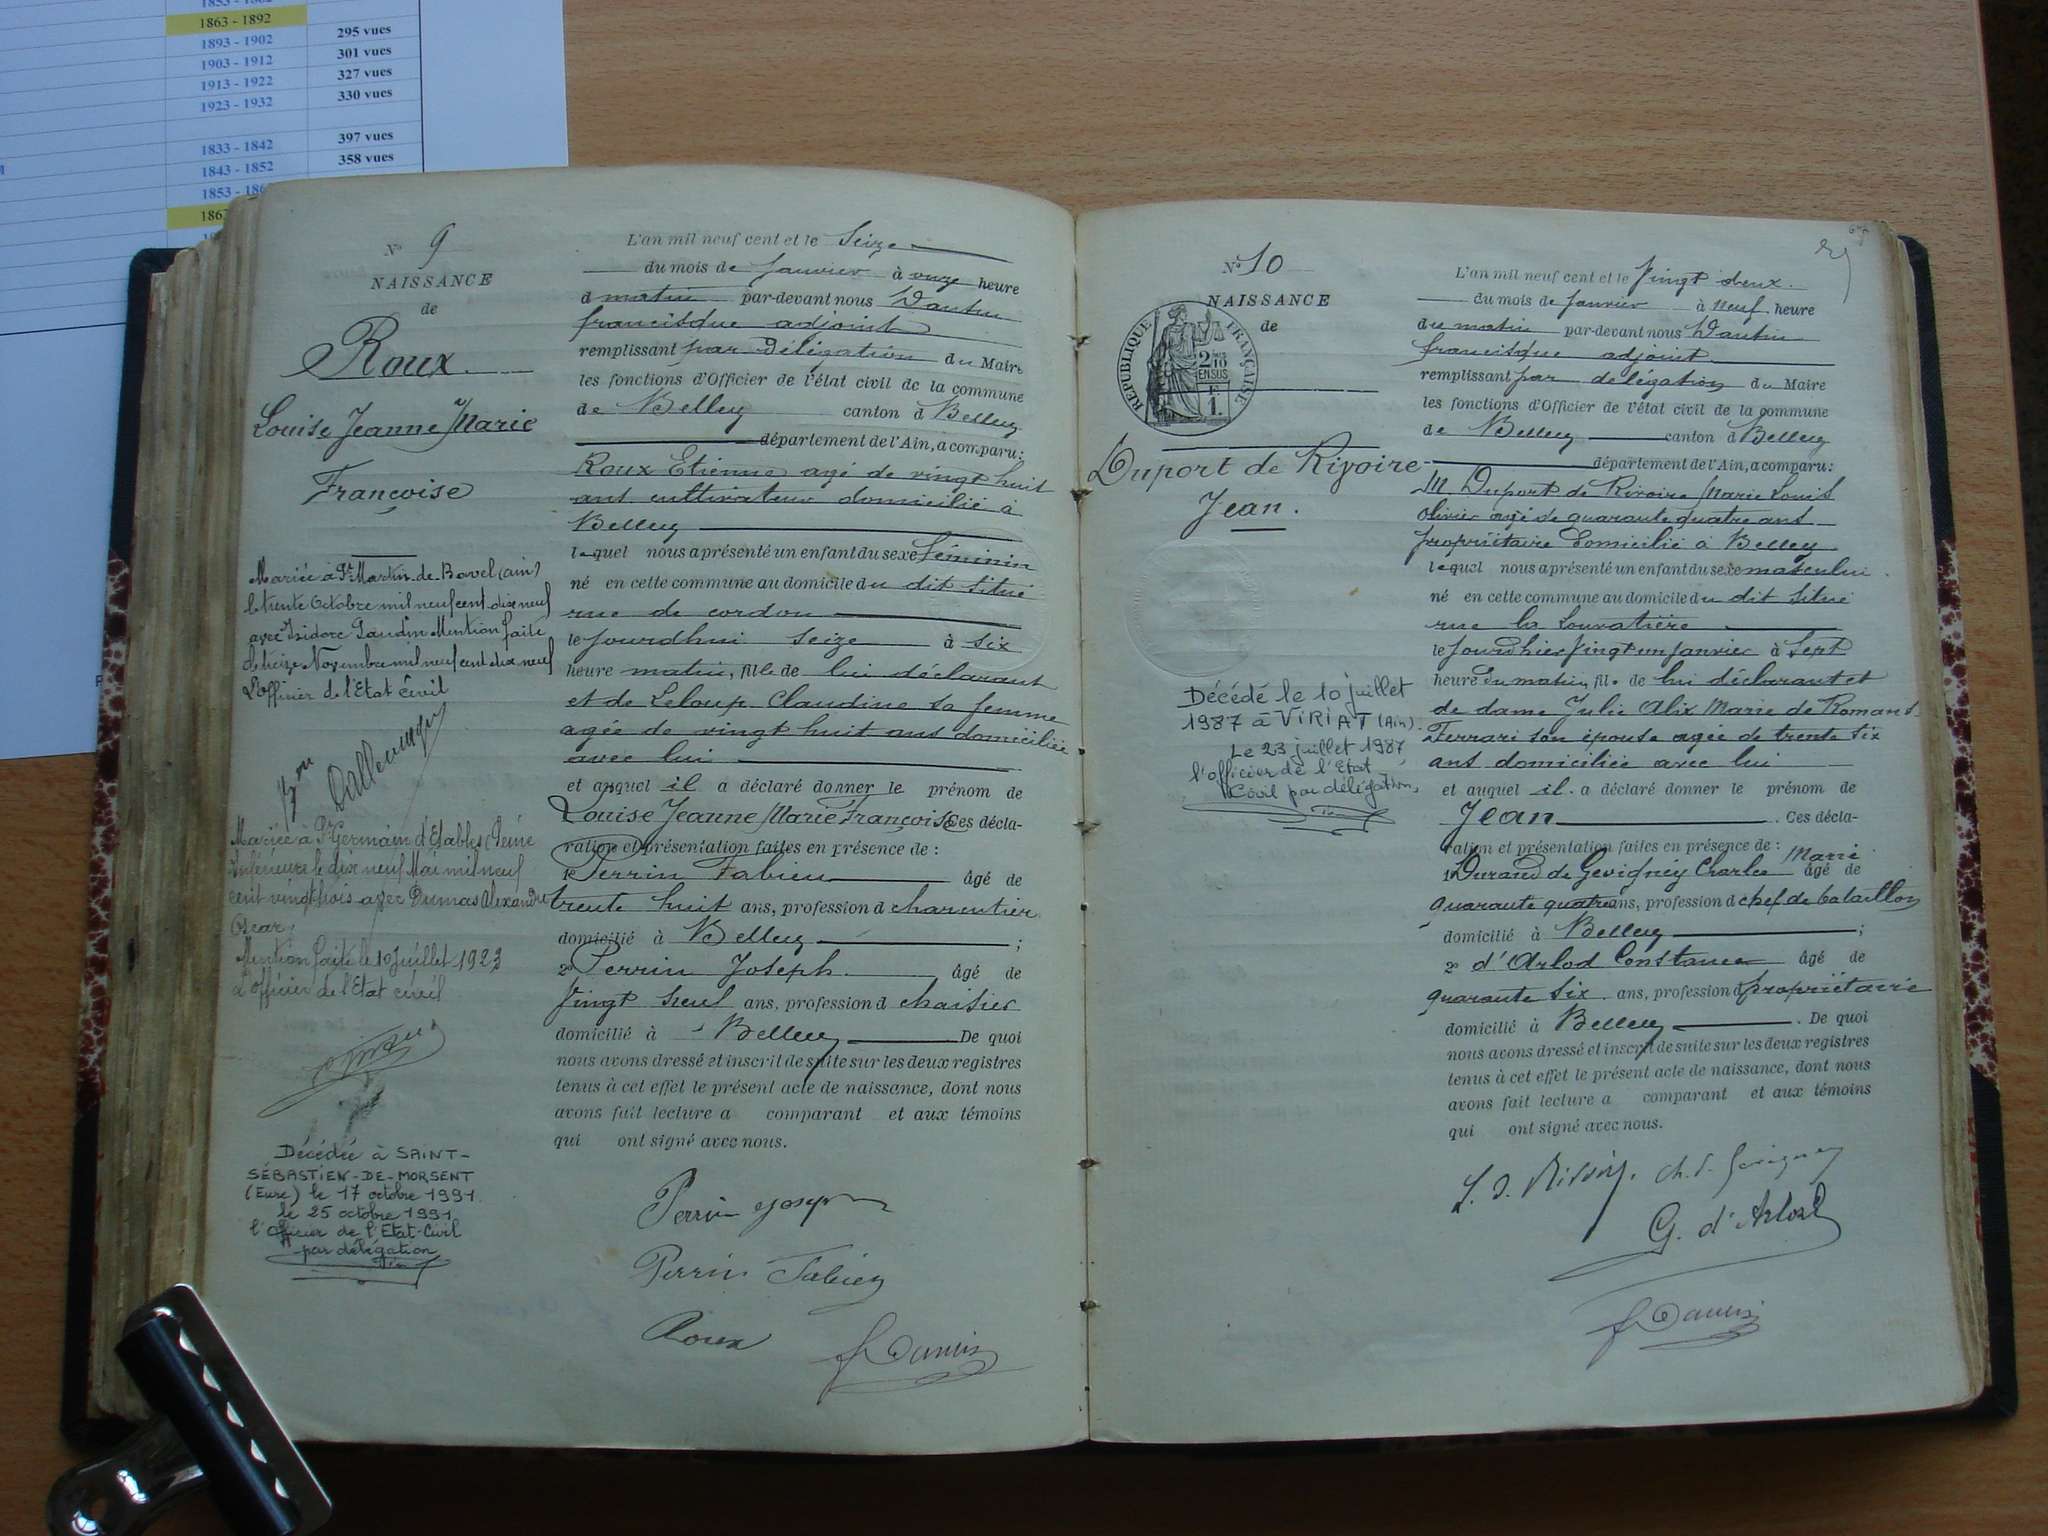 1853 - 1862
1863 - 1892
1893 - 1902 295 vues
1903 - 1912 301 vues
1913 - 1922 327 vues
1923 - 1932 330 vues
1833 - 1842 397 vues
1843 - 1852 358 vues
1853 - 186
186
N° 9
NAISSANCE
de
Roux
Louise Jeanne Marie
Françoise
Mariée à St Martin de Bavel (ain)
le trente Octobre mil neuf cent dix neuf
avec Isidore Gaudin Mention faite
le treize Novembre mil neuf cent dix neuf
L'Officier de l'Etat Civil
Mariée à St Germain d'Etables (Seine
Inférieure le dix neuf Mai mil neuf
cent vingt trois avec Dumas Alexandre
Oscar,
Mention faite le 10 Juillet 1923
L'officier de l'Etat civil
Décédée à SAINT-
SÉBASTIEN-DE-MORSENT
(Eure) le 17 octobre 1991
le 25 octobre 1991
l'officier de l'Etat-Civil
par délégation
L'an mil neuf cent et le Seize
du mois de Janvier à onze heure
d matin par-devant nous Dantin
francisque adjoint
remplissant par Délégation du Maire
les fonctions d'Officier de l'état civil de la commune
de Belley canton d Belley
département de l'Ain, a comparu:
Roux Etienne agé de vingt huit
ans cultivateur domicilié à
Belley
lequel nous a présenté un enfant du sexe féminin
né en cette commune au domicile du dit situé
rue de cordon
le Jourdhui seize à six
heure matin, fille de lui déclarant
et de Leloup Claudine sa femme
agée de vingt huit ans domiciliée
avec lui
et auquel il a déclaré donner le prénom de
Louise Jeanne Marie Françoise Ces décla-
ration et présentation faites en présence de :
1° Perrin Fabien âgé de
trente huit ans, profession d charentier
domicilié à Belley ;
2° Perrin Joseph âgé de
Vingt neuf ans, profession d chaisier
domicilié à Belley De quoi
nous avons dressé et inscrit de suite sur les deux registres
tenus à cet effet le présent acte de naissance, dont nous
avons fait lecture a comparant et aux témoins
qui ont signé avec nous.
Perrin Joseph
Perrin Fabien
Roux
f Dantin
N° 10
NAISSANCE
de
RÉPUBLIQUE FRANÇAISE
2/10
EN SUS
1F.
Duport de Rivoire
Jean.
Décédé le 10 juillet
1987 à VIRIAT (Ain)
Le 23 juillet 1987,
l'officier de l'Etat
Civil par délégation,
L'an mil neuf cent et le Vingt deux
du mois de Janvier à neuf heure
du matin par-devant nous Dantin
francisque adjoint
remplissant par délégation du Maire
les fonctions d'Officier de l'état civil de la commune
de Belley canton d Belley
département de l'Ain, a comparu:
M Duport de Rivoire Marie Louis
Olivier agé de quarante quatre ans
propriétaire Domicilié à Belley
lequel nous a présenté un enfant du sexe masculin
né en cette commune au domicile du dit situé
rue la Louvatière
le Jourdhier Vingt un Janvier à Sept
heure du matin, fils de lui déclarant et
de dame Julie Alix Marie de Romans
Ferrari son épouse agée de trente six
ans domiciliée avec lui
et auquel il a déclaré donner le prénom de
Jean . Ces décla-
ration et présentation faites en présence de :
1° Durand de Gevigney Charles Marie âgé de
quarante quatre ans, profession d chef de bataillon
domicilié à Belley ;
2° d'Arlod Constance âgé de
quarante six ans, profession d propriétaire
domicilié à Belley . De quoi
nous avons dressé et inscrit de suite sur les deux registres
tenus à cet effet le présent acte de naissance, dont nous
avons fait lecture a comparant et aux témoins
qui ont signé avec nous.
Ch. d. Gevigney
G. d'Arlod
f Dantin